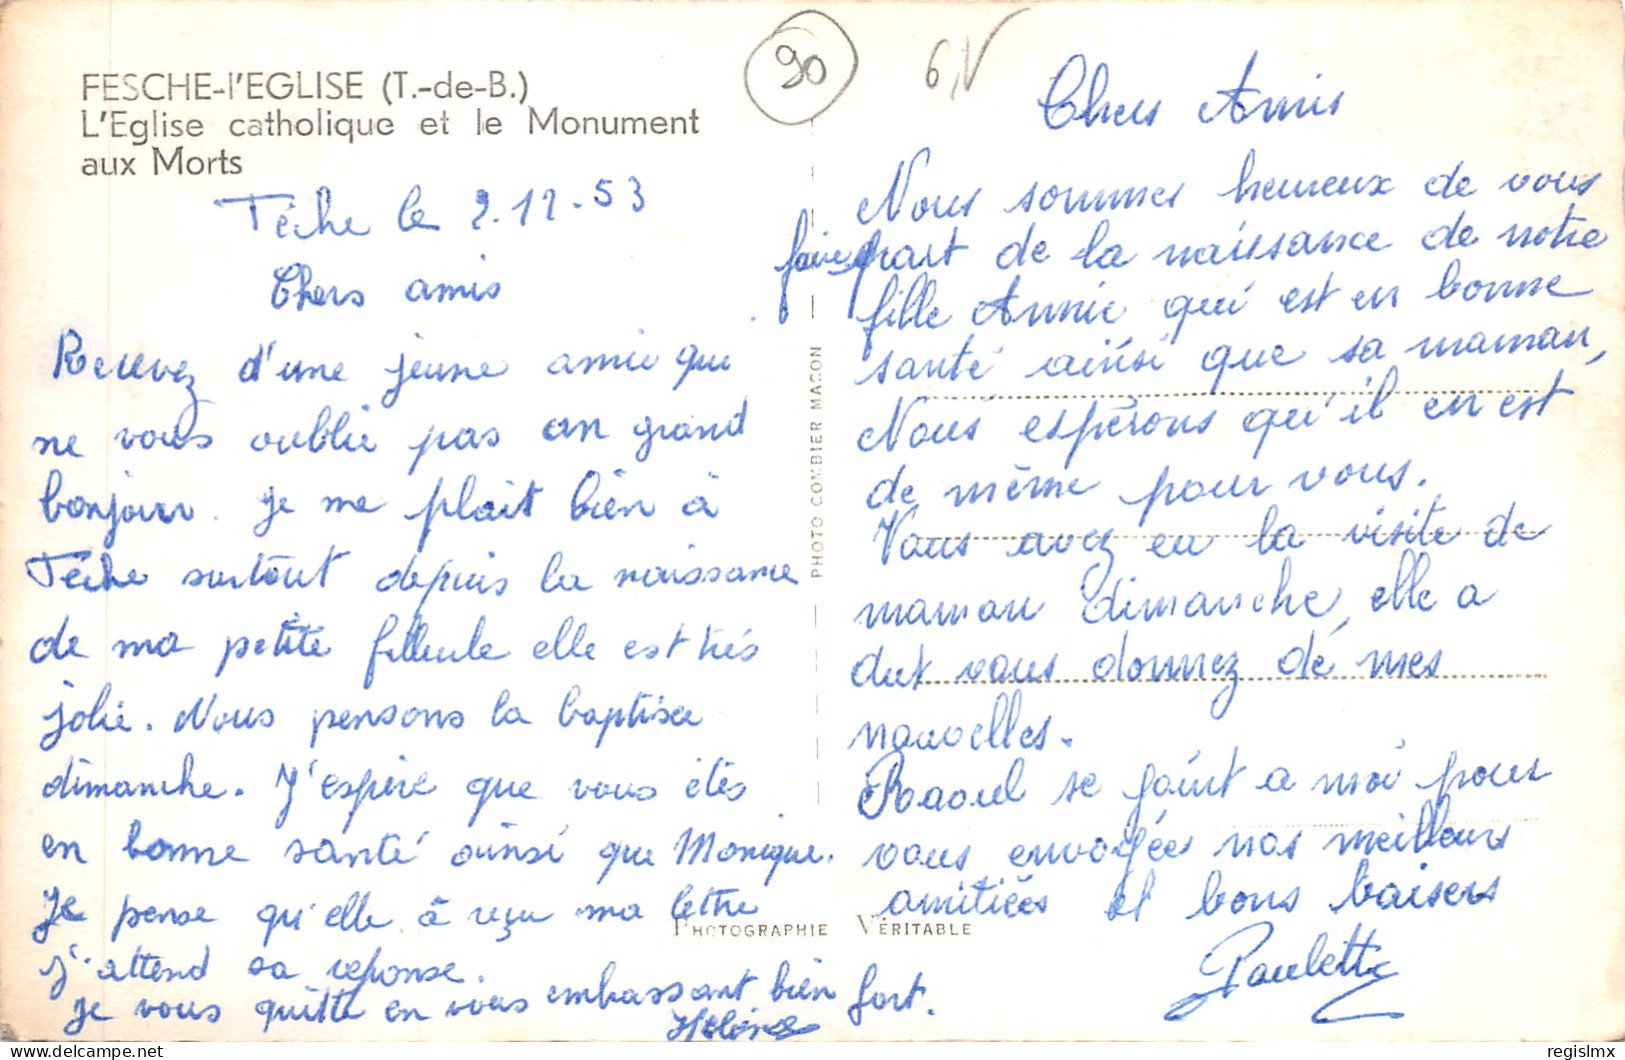 FESCHE-l'EGLISE (T.-de-B.)
L'Eglise catholique et le Monument
aux Morts
Fêche le 2.12.53
Chers amis
Recevez d'une jeune amie qui
ne vous oublie pas un grand
bonjour. Je me plait bien à
Fêche surtout depuis la naissance
de ma petite filleule elle est très
jolie. Nous pensons la baptisée
dimanche. J'espère que vous étés
en bonne santé ainsi que Monique.
Je pense qu'elle à reçu ma lettre
j'attend sa reponse.
je vous quitte en vous embrassant bien fort.
Hélène
90
6,V
Chers Amis
Nous sommes heureux de vous
faire part de la naissance de notre
fille Annie qui est en bonne
santé ainsi que sa maman,
Nous espérons qu'il en est
de même pour vous.
Vous avez eu la visite de
maman Dimanche, elle a
dut vous donnez de mes
nouvelles.
Raoul se joint a moi pour
vous envoyées nos meilleurs
amitiées et bons baisers
Paulette
PHOTO COMBIER MACON
PHOTOGRAPHIE VÉRITABLE
regislmx
delcampe.net